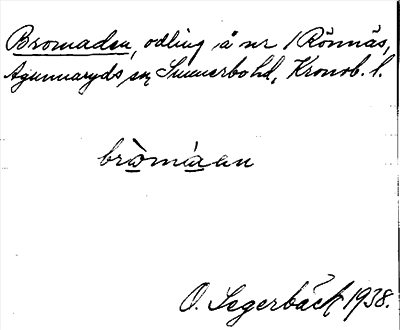 Bromaden, odling å nr 1 Rönnäs,
Agunnaryds sn, Sunnerbo hd, Kronob. l.
bròmáan
O. Segerbäck 1938.